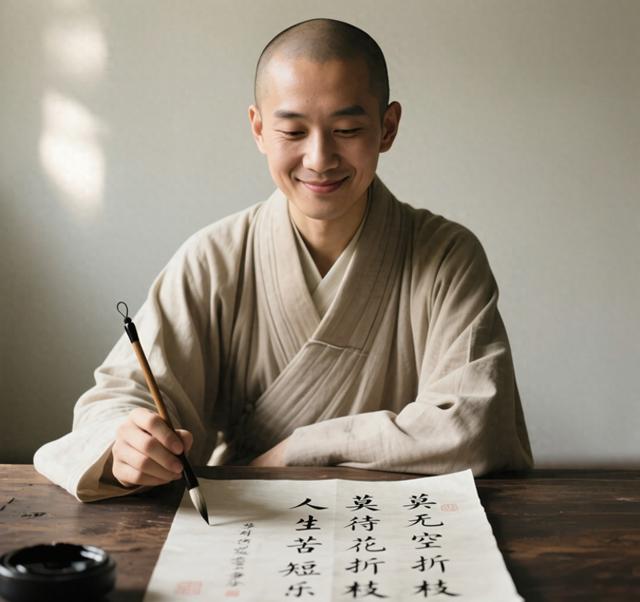 莫无空折枝
莫待花折枝
人生苦短乐